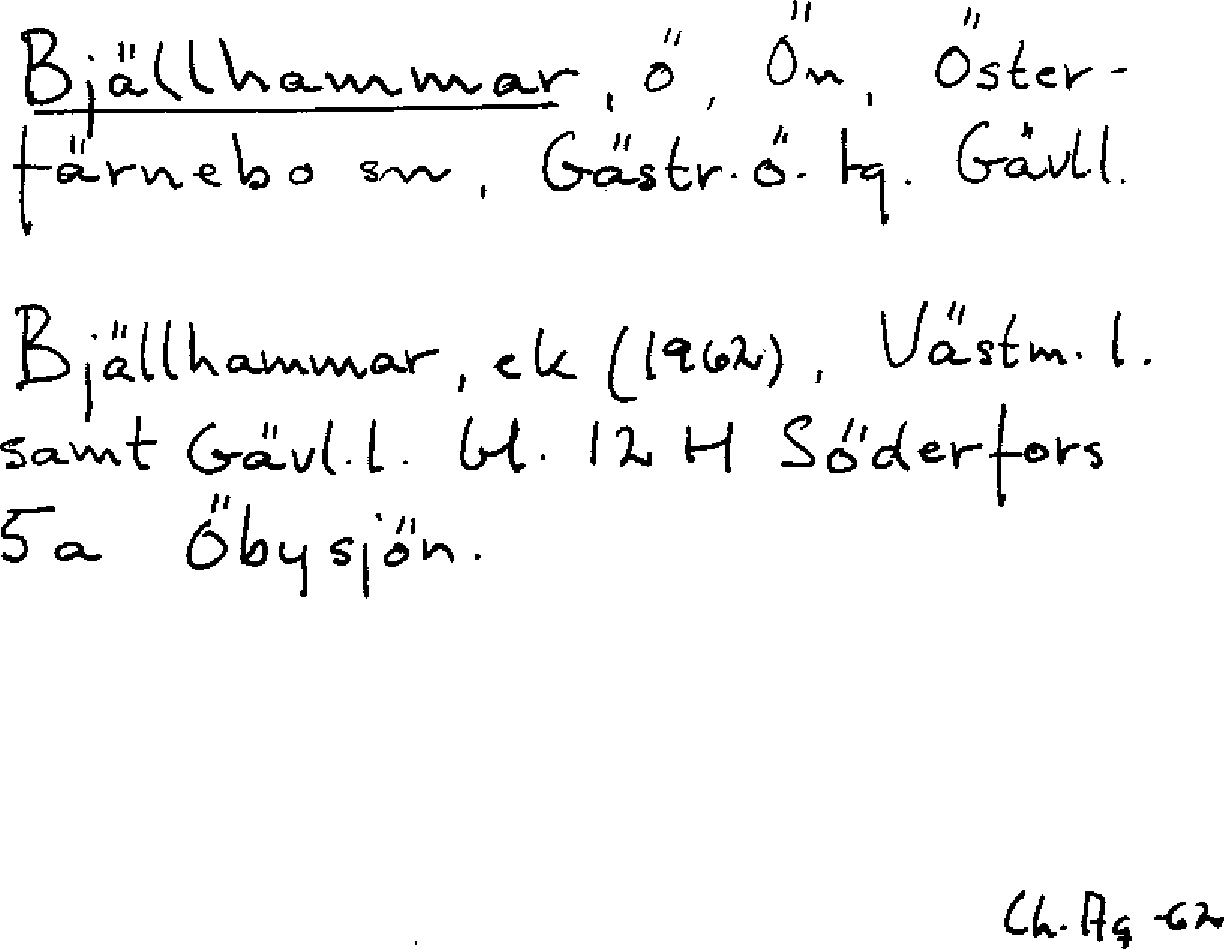 Bjällhammar, ö, Ön, Öster-
färnebo sn, Gästr. ö. tg. Gävl.l.
Bjällhammar, ek (1962), Västm. l.
samt Gävl.l. bl. 12 H Söderfors
5a Öbysjön.
Ch. Ag -62